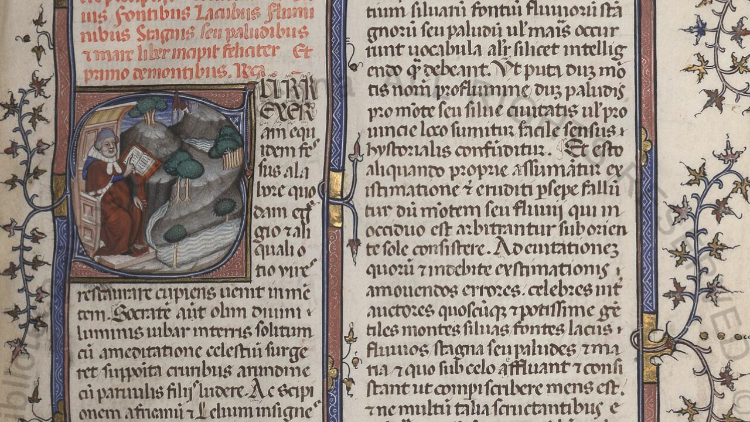 uis Fontibus Lacibus Flumi
nibus Stagnis seu paludibus
& mare liber incipit feliciter Et
primo demontibus.
SURRE
EXER
am equi
idem fes
sus ala
bore quo
dam egre
gio & ali
quali o
tio vire
restaurare cupiens uenit inmē
tem. Socrate aut olim diuini
luminis iubar interris solitum
cū ameditatione celestiū surge
ret supposita cruribus arundine
cū paruulis filijs ludere. Ac scipi
onem africanū & Lelium insigne
tium siluarū fontiū fluuiorū sta
gnorū seu paludiū ul' maris occur
runt uocabula alr' silicet intellig
endo qđ debeant. Ut puta dūz mō
tis nom proflumine dūz paludis
pro mōte seu silue ciuitatis ul' pro
uincie loco sumitur facile sensus
hystorialis confūditur. Et esto
aliquando proprie assumātur ex
istimatione & eruditi psepe fallū
tur dū mōtem seu fluuiū qui in
occiduo est arbitrantur suborien
te sole consistere. Ad euitationez
quorū & indebite existimationis
amouendos errores. celebres int
auctores quoscūqz & potissime gē
tiles montes siluas fontes lacus
fluuios stagna seu paludes & ma
ria & quo sub celo affluant & consi
stant ut compi scribere mens est.
& ne multū talia scructantibus e